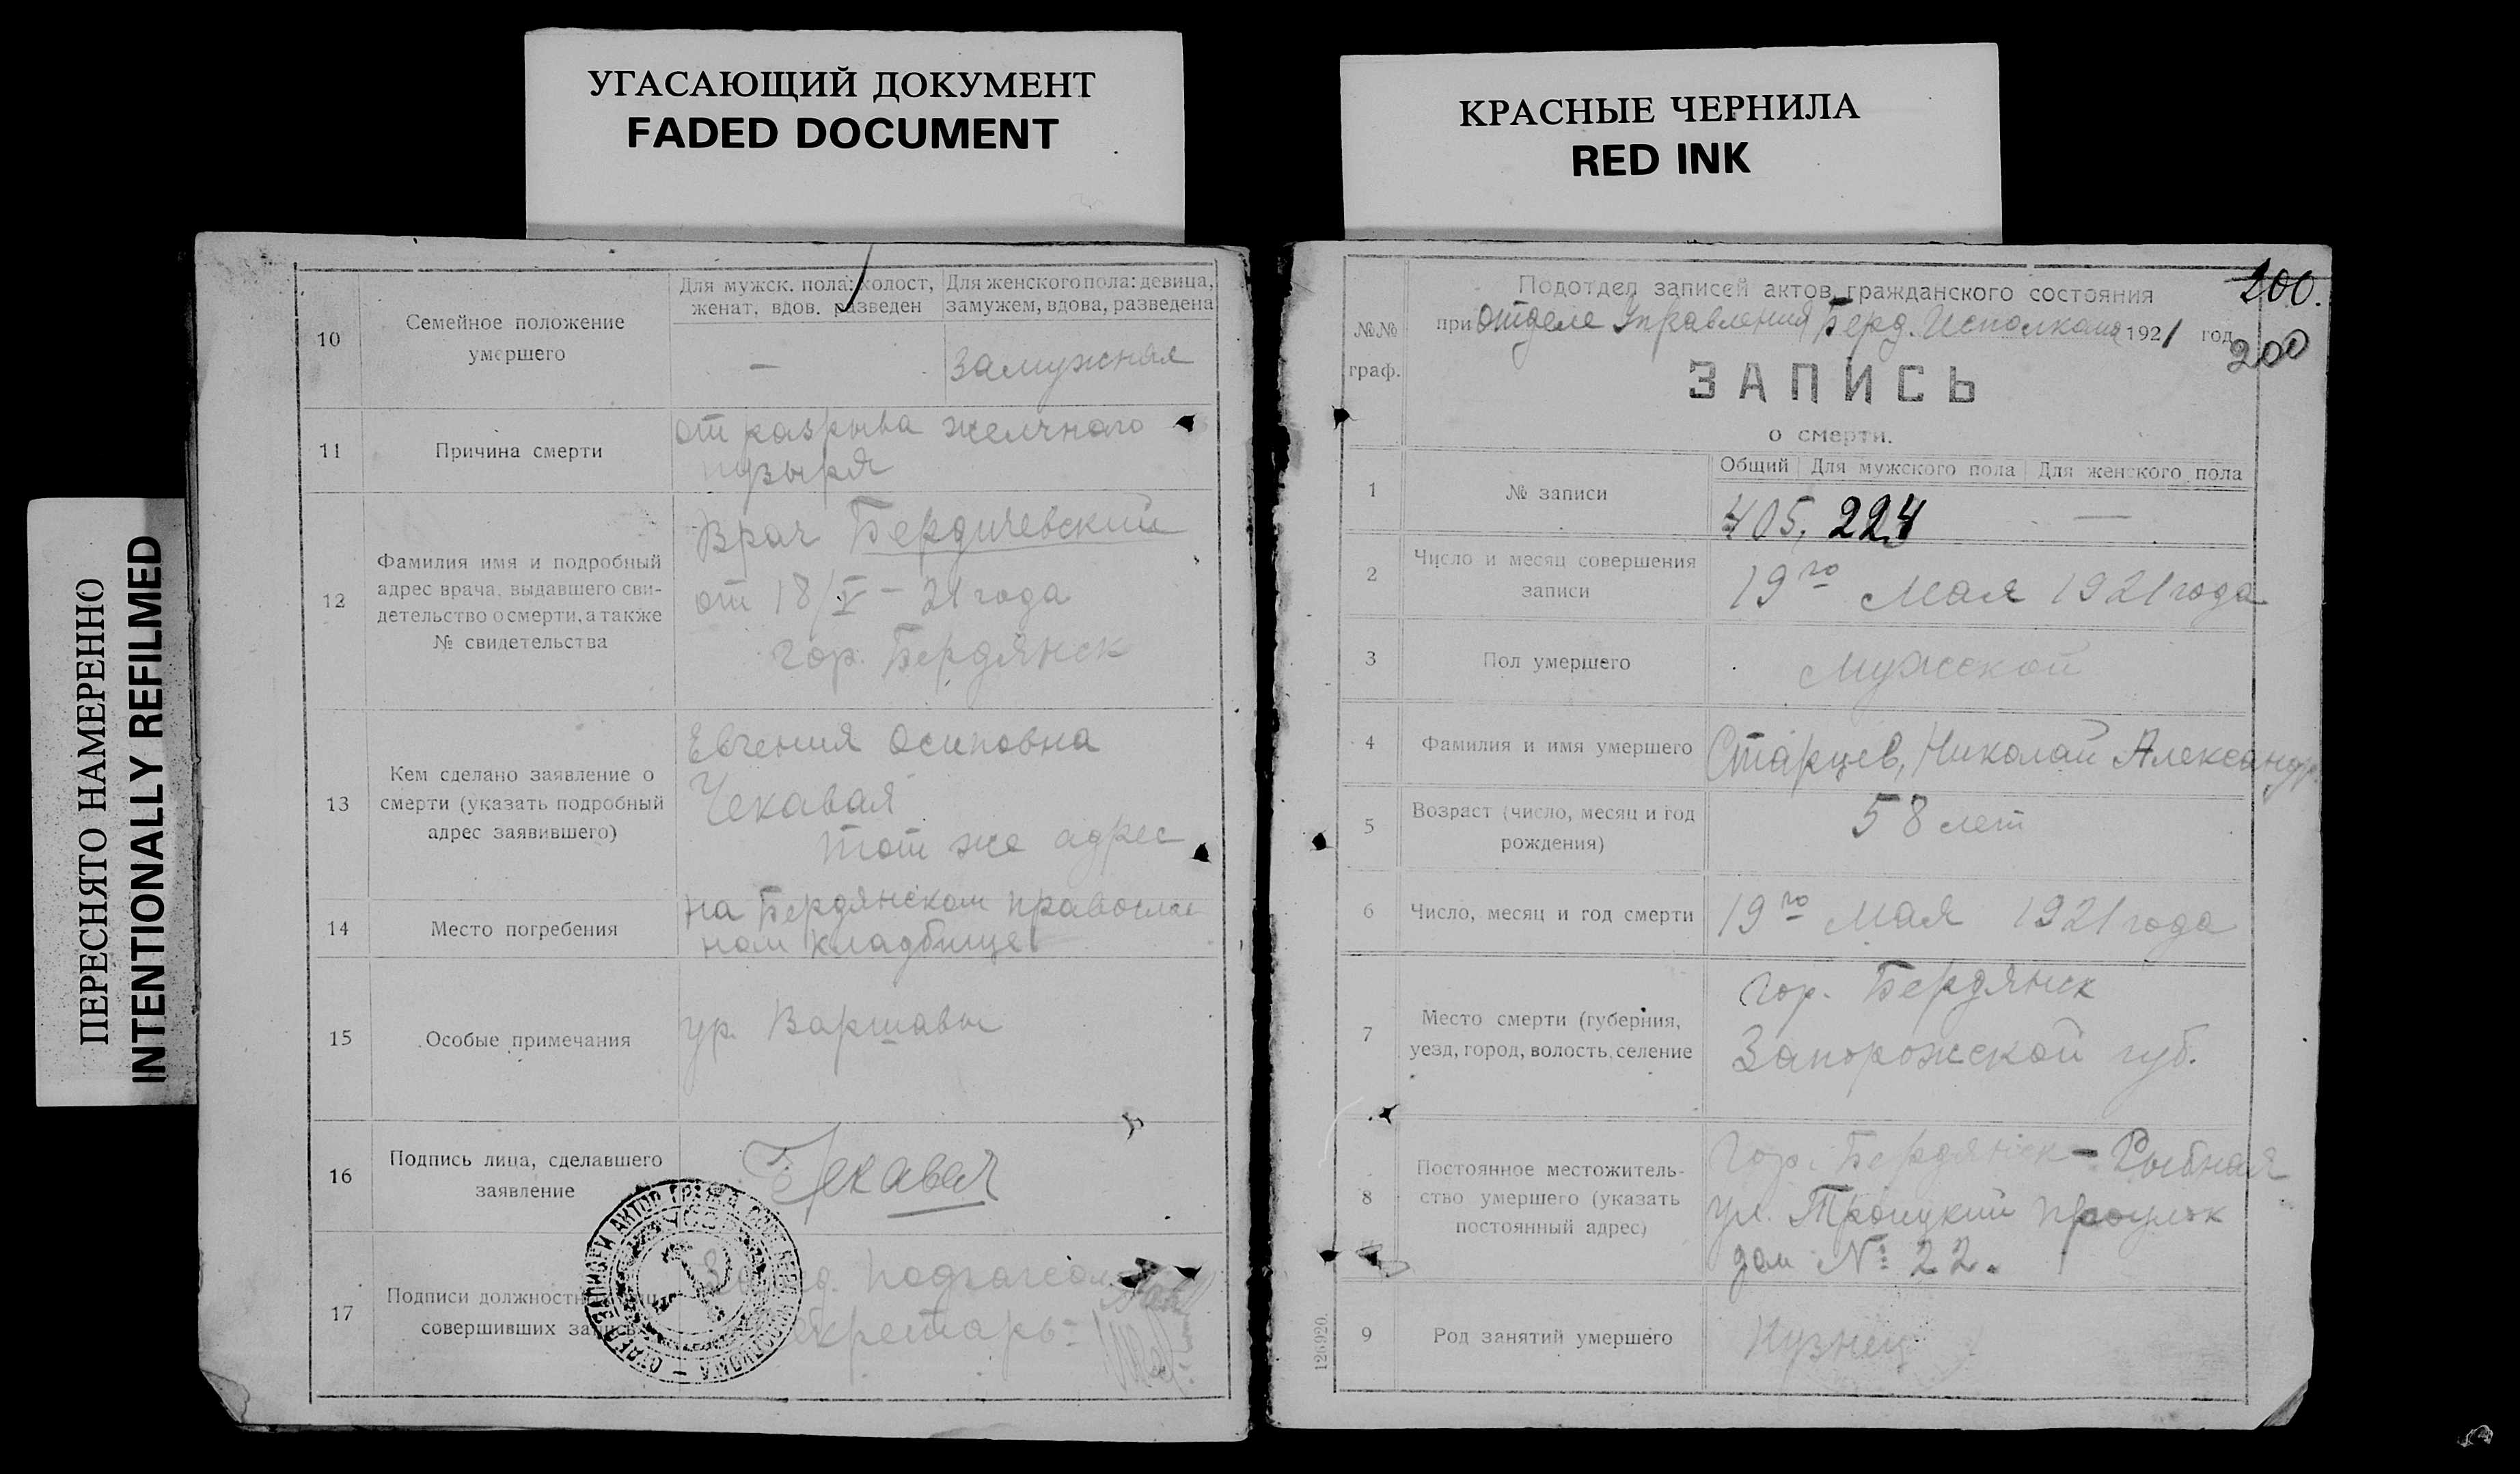 УГАСАЮЩИЙ ДОКУМЕНТ
FADED DOCUMENT
КРАСНЫЕ ЧЕРНИЛА
RED INK
ПЕРЕСНЯТО НАМЕРЕННО
INTENTIONALLY REFILMED
10
Семейное положение
умершего
Для мужск. пола: холост,
женат, вдов. разведен
Для женского пола: девица,
замужем, вдова, разведена
—
замужняя
11
Причина смерти
от разрыва желчного
пузыря
12
Фамилия имя и подробный
адрес врача, выдавшего сви-
детельство о смерти, а также
№ свидетельства
Врач Бердичевский
от 18/V – 21 года
гор. Бердянск
13
Кем сделано заявление о
смерти (указать подробный
адрес заявившего)
Евгения Осиповна
Чекавая
тот же адрес
14
Место погребения
на Бердянском православ
ном кладбище
15
Особые примечания
ур. Варшавы
16
Подпись лица, сделавшего
заявление
Чекавая
17
Подписи должностн
совершивших запись
Секретарь
200.
200
№№
граф.
Подотдел записей актов гражданского состояния
при Отделе Управления Берд. Исполкома 1921 год
ЗАПИСЬ
о смерти.
1
№ записи
Общий
Для мужского пола
Для женского пола
405. 224 —
2
Число и месяц совершения
записи
19го Мая 1921 года
3
Пол умершего
Мужской
4
Фамилия и имя умершего
Старцев, Николай Александр.
5
Возраст (число, месяц и год
рождения)
58 лет
6
Число, месяц и год смерти
19го Мая 1921 года
7
Место смерти (губерния,
уезд, город, волость, селение
гор. Бердянск
Запорожской губ.
8
Постоянное местожитель-
ство умершего (указать
постоянный адрес)
Гор. Бердянск – Рыбная
ул. Троицкий проулок
дом № 22.
9
Род занятий умершего
Кузнец
126920